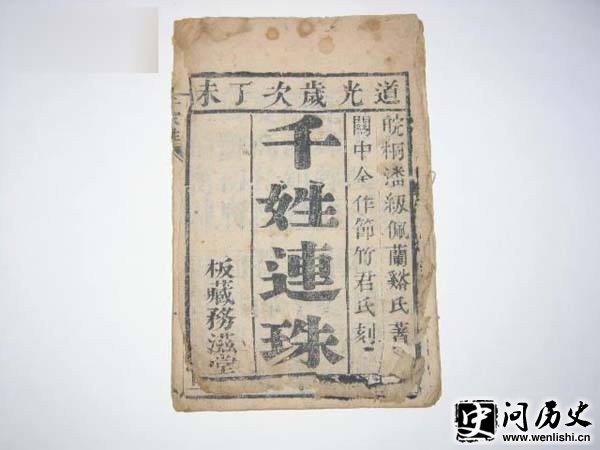 道光歲次丁未
皖桐潘級佩蘭谿氏著
關中全作節竹君氏刻
千姓連珠
板藏務滋堂
问历史
www.wenlishi.cn